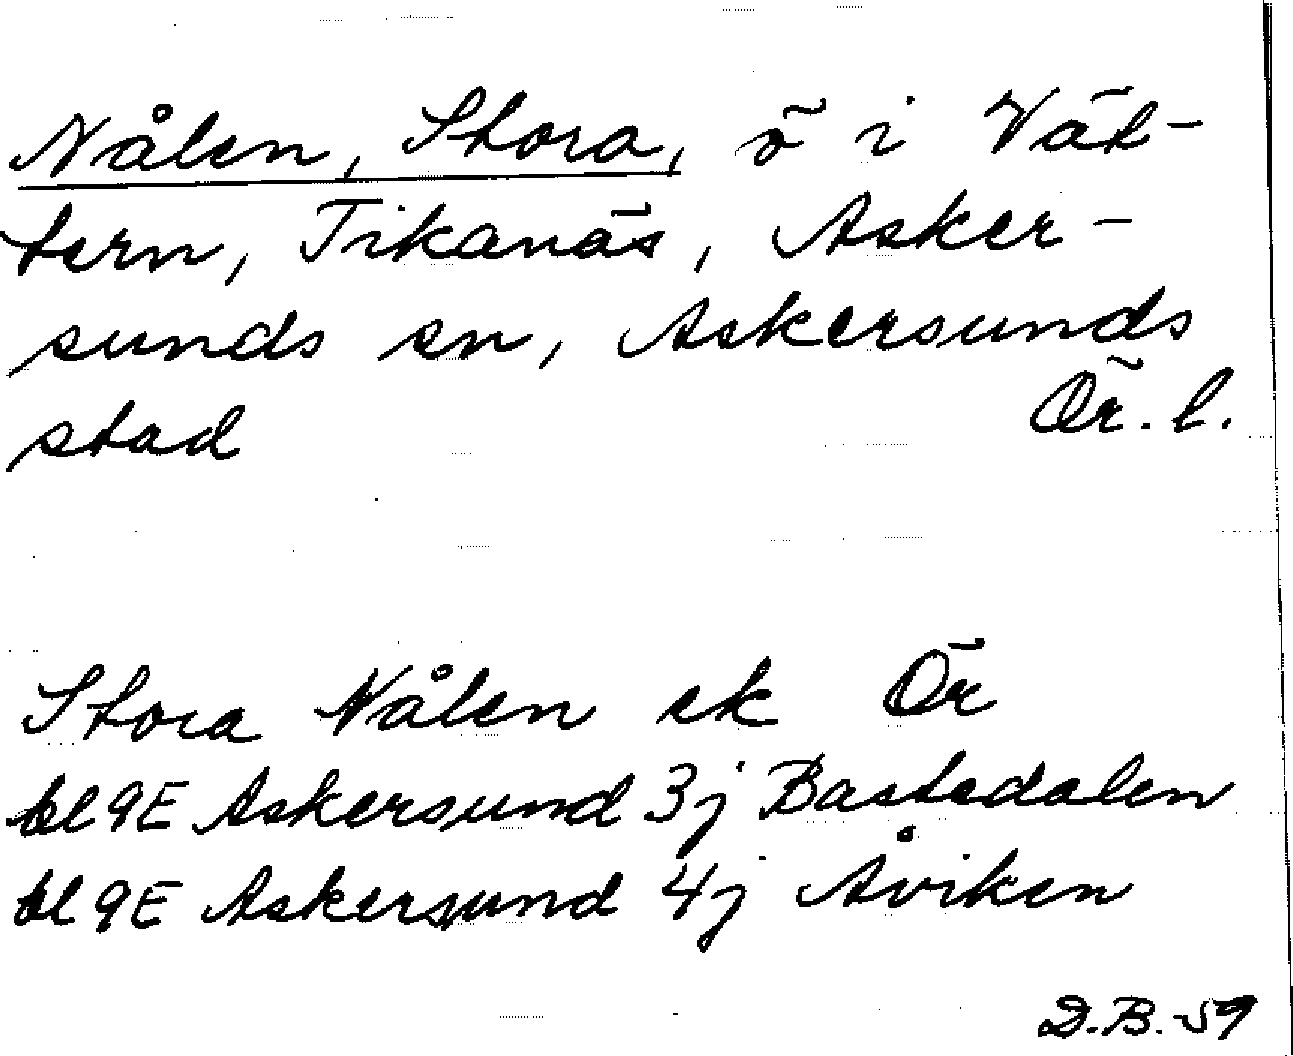 Nålen, Stora, ö i Vät-
tern, Tikanäs, Asker-
sunds sn, Askersunds
stad Ör. l.
Stora Nålen ek Ör
bl 9E Askersund 3j Bastedalen
bl 9E Askersund 4j Åviken
D.B.-59